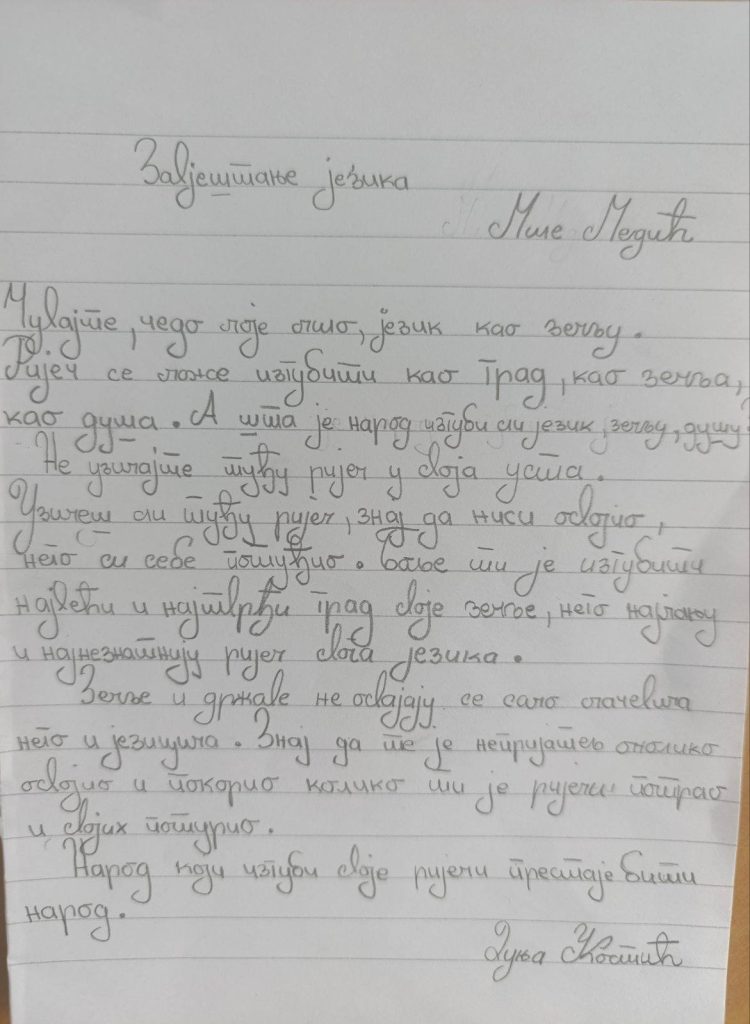 Завјештање језика
Миле Медић
Чувајте, чедо моје мило, језик као земљу.
Ријеч се може изгубити као град, као земља,
као душа. А шта је народ изгуби ли језик, земљу, душу?
Не узимајте туђу ријеч у своја уста.
Узмеш ли туђу ријеч, знај да ниси освојио,
него си себе потуђио. Боље ти је изгубити
највећи и најтврђи град своје земље, него најмању
и најнезнатнију ријеч свога језика.
Земље и државе не освајају се само мачевима
него и језицима. Знај да те је непријатељ онолико
освојио и покорио колико ти је ријечи потрао
и својих потурио.
Народ који изгуби своје ријечи престаје бити
народ.
Дуња Костић